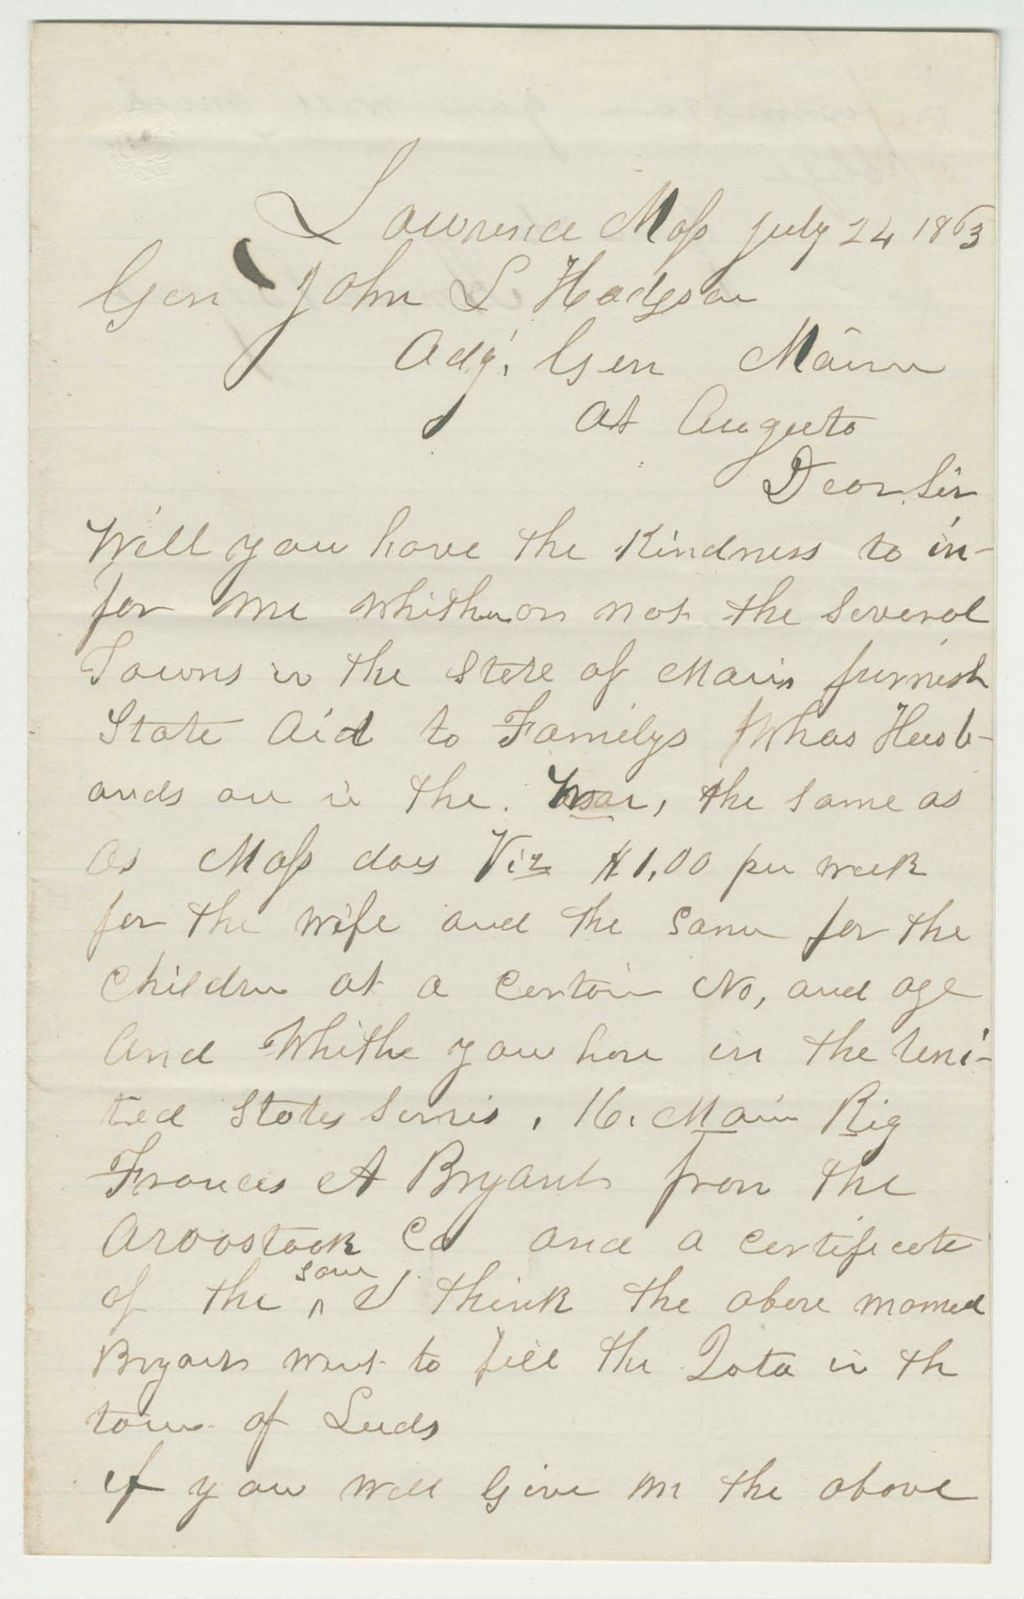 Lawrence Mass July 24 1863
Gen John L Hodgson
Adj, Gen Maine
At Augusta
Dear Sir
Will you have the Kindness to in-
for me whither or not the Several
Towns in the State of Main furnish
State Aid to Familys Whas Husb-
ands are in the. War, the same as
as Mass does Viz $1,00 per week
for the wife and the same for the
Children at a Certain No, and age
And Whithe you have in the Uni-
ted States Servis, 16. Main Rig
Frances A Bryant from the
Aroostook Co and a certificate
of the ^same I think the above named
Bryant went to fill the Qota in th
town of Leeds
if you will Give me the above